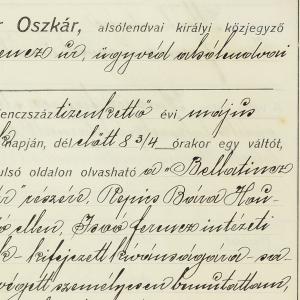 r Oszkár, alsólendvai királyi közjegyző
ferencz úr, ügyvéd alsólendvai
enczszáz tizenkettő évi május
napján, dél előtt 8 3/4 órakor egy váltót,
ulsó oldalon olvasható a "Bellatincz
részére, Pepics Bára Hau-
ellen, Isoó ferencz intézeti
k - kifejezett kívánságára - sa-
végett személyesen bemutattam,